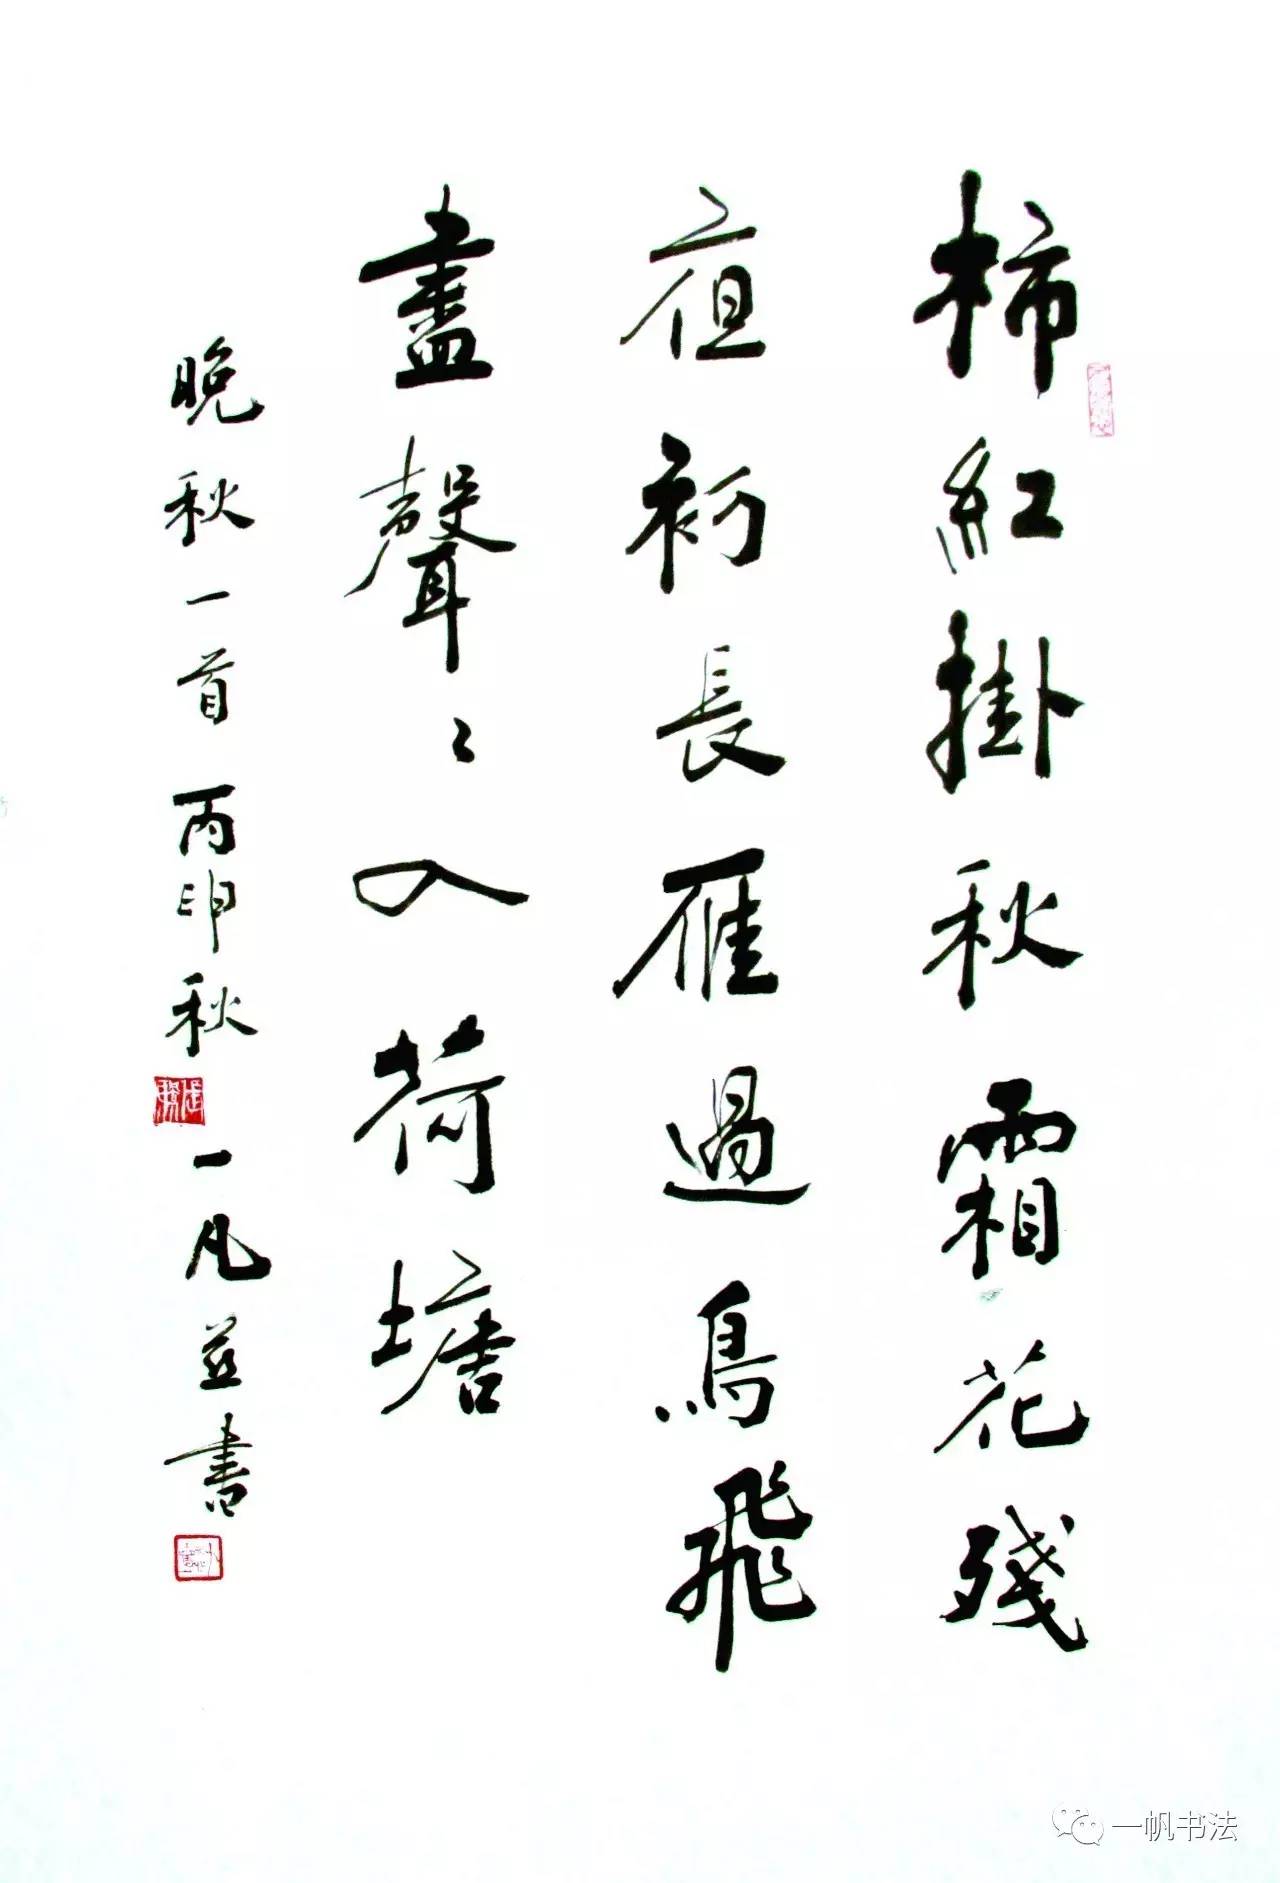 柿紅掛秋霜花殘
夜初長雁過鳥飛
盡聲〻入荷塘
晚秋一首丙申秋一凡並書
一帆书法